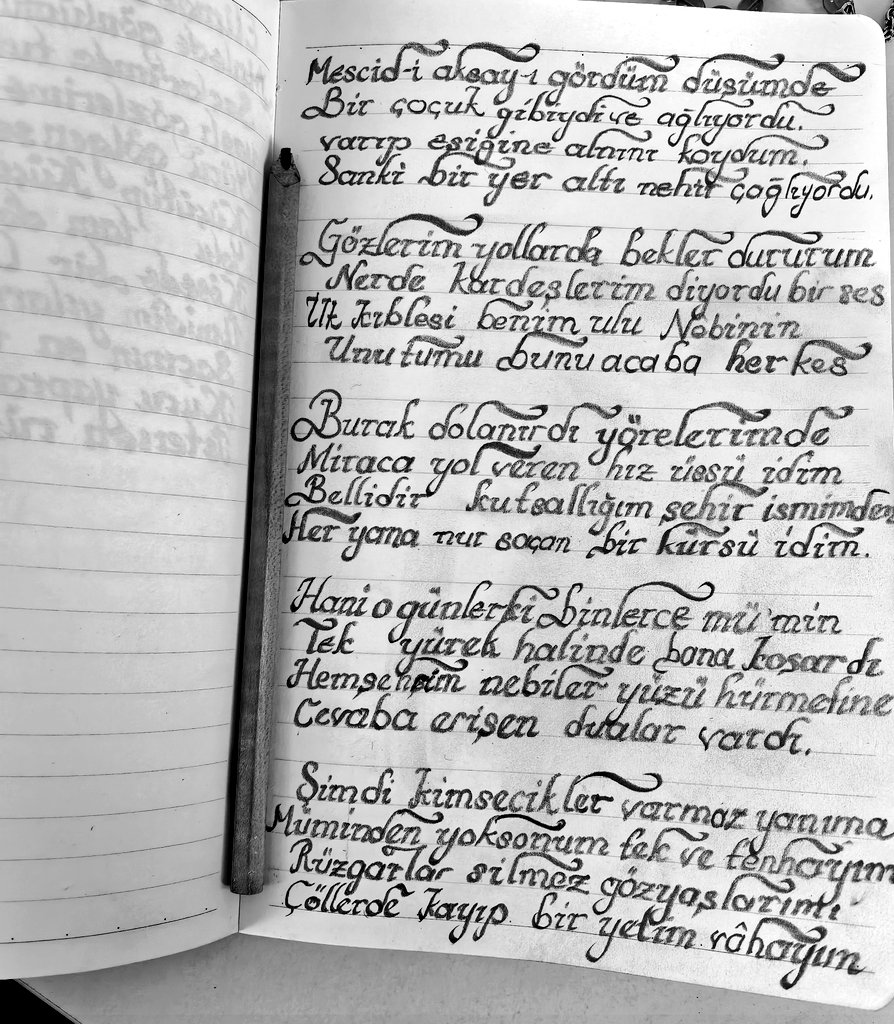 Mescid-i aksay-ı gördüm düşümde
Bir çoçuk gibiydi ve ağlıyordu.
varıp eşiğine alnımı koydum.
Sanki bir yer altı nehir çağlıyordu.
Gözlerim yollarda bekler dururum
Nerde kardeşlerim diyordu bir ses
İlk Kıblesi benim ulu Nebinin
Unutumu bunu acaba herkes
Burak dolanırdı yörelerimde
Miraca yol veren hız üssü idim
Bellidir kutsallığım şehir ismimden
Her yana nur saçan bir kürsü idim.
Hani o günler ki binlerce mü'min
Tek yürek halinde bana koşardı
Hemşehrim nebiler yüzü hürmetine
Cevaba erişen dualar vardı.
Şimdi kimsecikler varmaz yanıma
Müminden yoksonum tek ve tenhayım
Rüzgarlar silmez gözyaşlarımı
Çöllerde kayıp bir yetim vâhayım